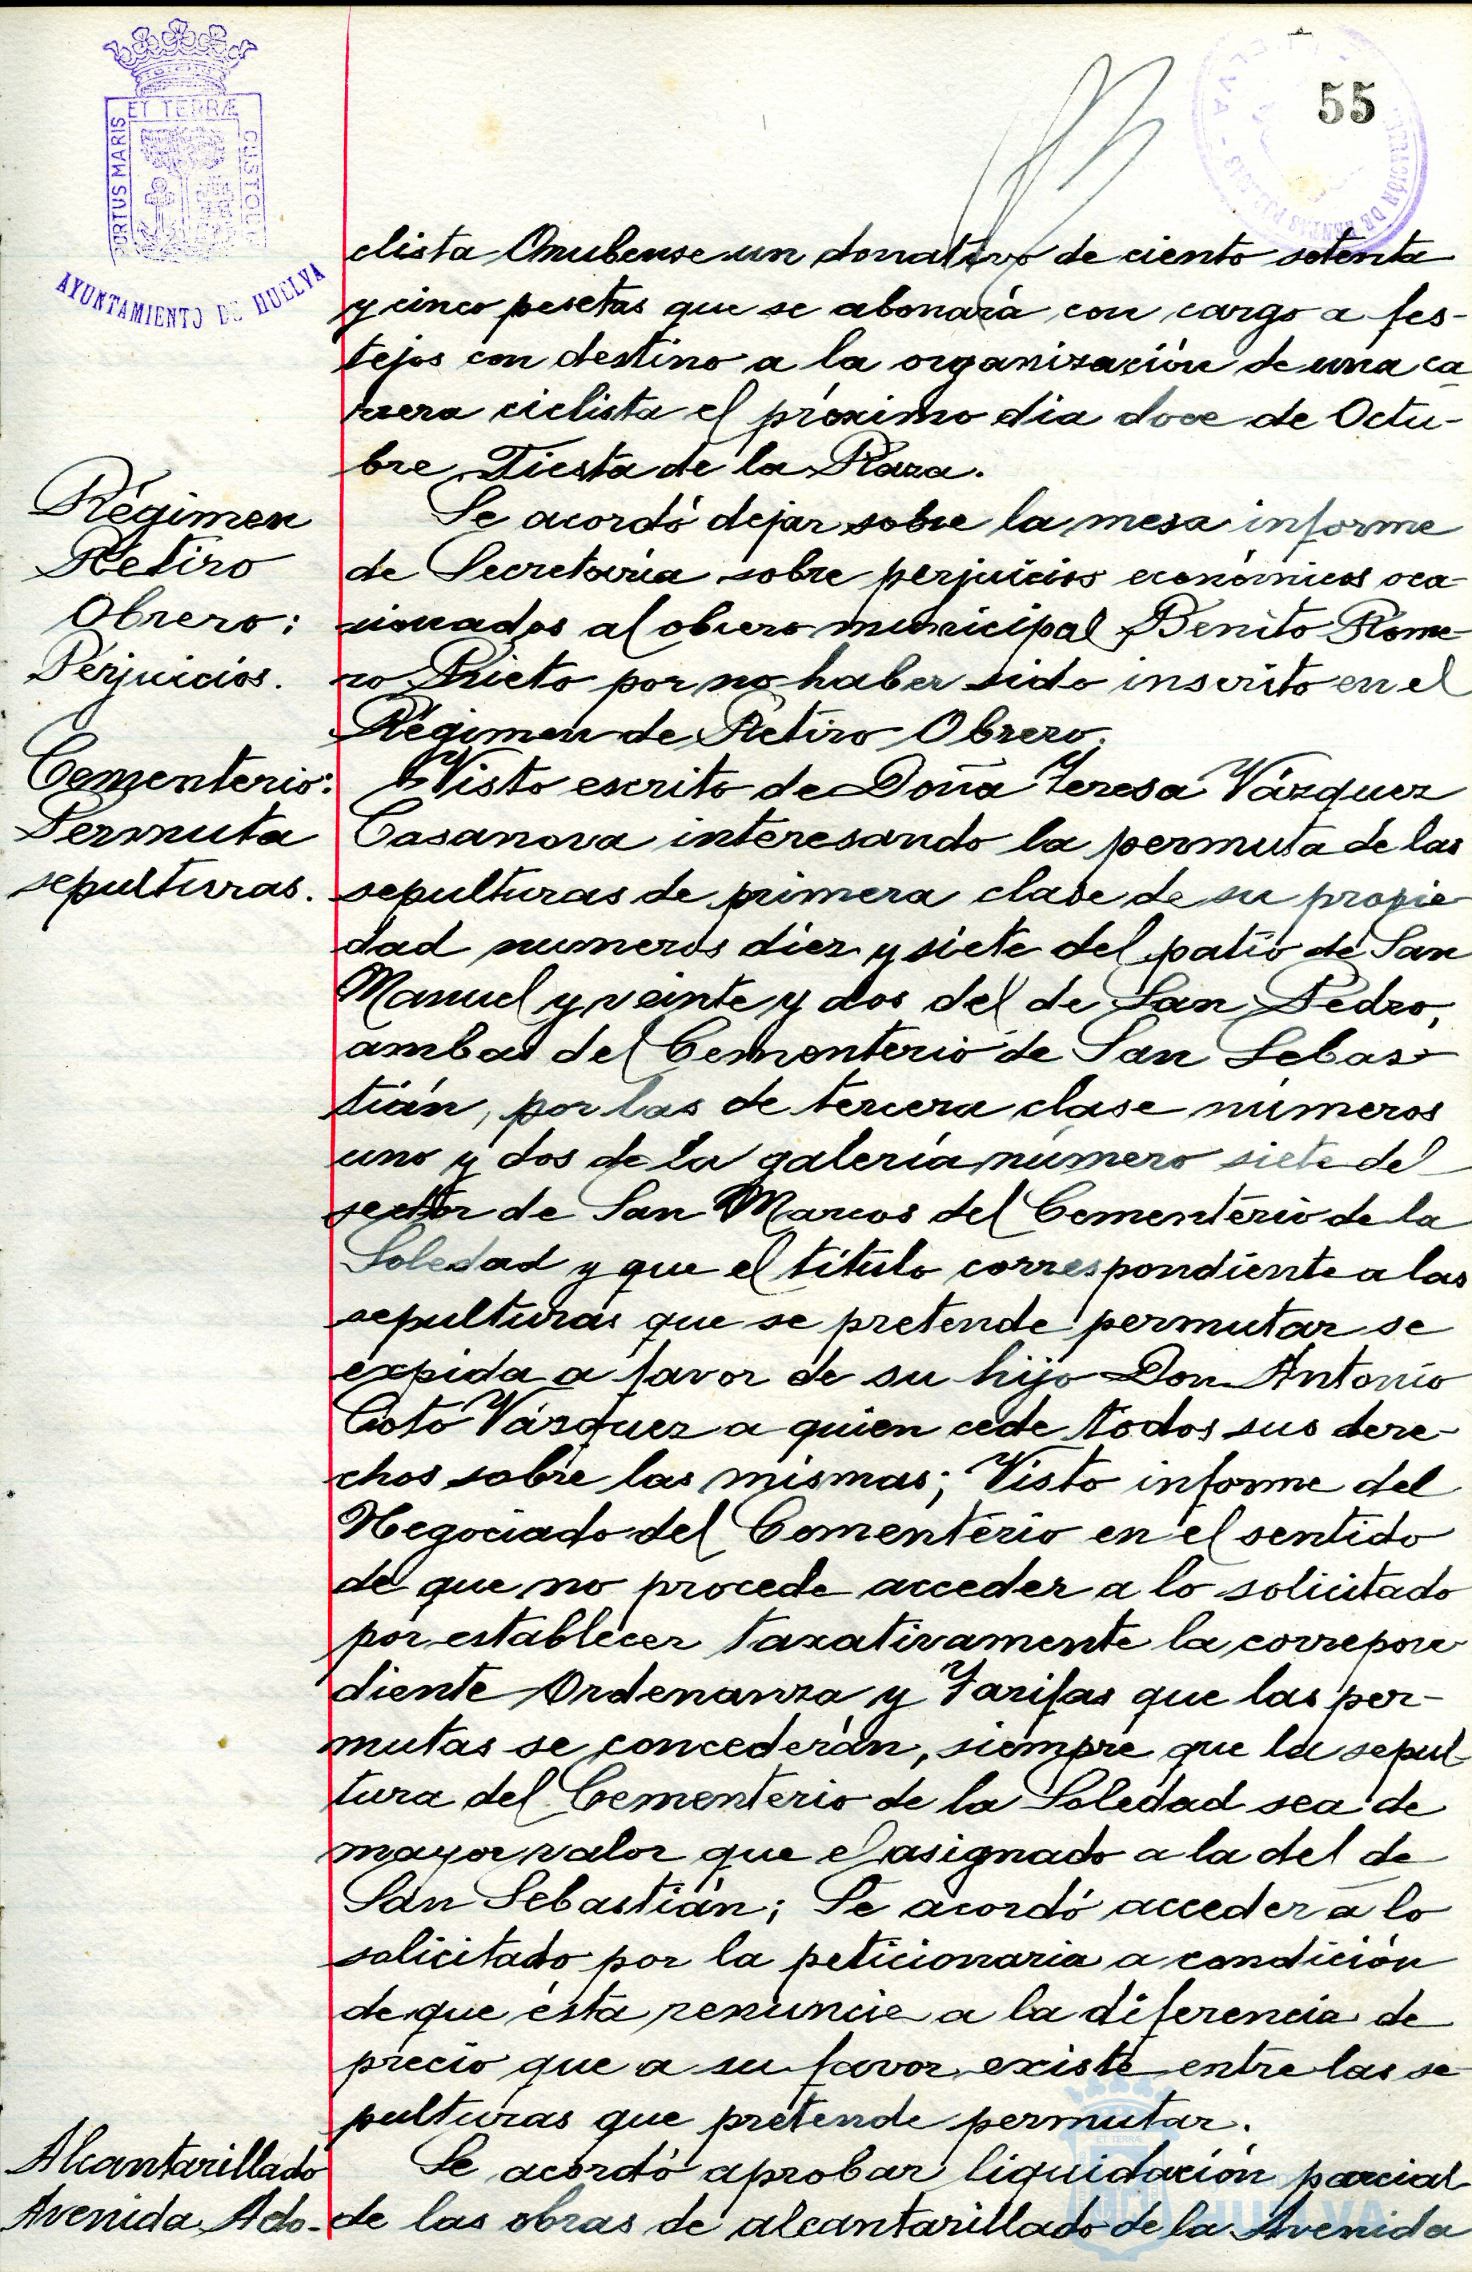 ET TERRÆ
PORTUS MARIS
CUSTODIA
AYUNTAMIENTO DE HUELVA
55
clista Onubense un donativo de ciento setenta
y cinco pesetas que se abonará con cargo a fes-
tejos con destino a la organización de una ca
rrera ciclista el próximo dia doce de Octu-
bre, Fiesta de la Raza.
Régimen
Retiro
Obrero:
Perjuicios.
Se acordó dejar sobre la mesa informe
de Secretaría sobre perjuicios económicos oca-
sionados al obrero municipal Benito Rome-
ro Prieto por no haber sido inscrito en el
Régimen de Retiro Obrero.
Cementerio:
Permuta
sepulturas.
Visto escrito de Doña Teresa Vázquez
Casanova interesando la permuta de las
sepulturas de primera clase de su propie-
dad numeros diez y siete del patio de San
Manuel y veinte y dos del de San Pedro,
ambas del Cementerio de San Sebas-
tián, por las de tercera clase números
uno y dos de la galería número siete del
sector de San Marcos del Cementerio de la
Soledad y que el título correspondiente a las
sepulturas que se pretende permutar se
expida a favor de su hijo Don Antonio
Coto Vázquez a quien cede todos sus dere-
chos sobre las mismas; Visto informe del
Negociado del Cementerio en el sentido
de que no procede acceder a lo solicitado
por establecer taxativamente la correpon-
diente Ordenanza y Tarifas que las per-
mutas se concederán, siempre que la sepul-
tura del Cementerio de la Soledad sea de
mayor valor que el asignado a la del de
San Sebastián; Se acordó acceder a lo
solicitado por la peticionaria a condición
de que ésta renuncie a la diferencia de
precio que a su favor existe entre las se-
pulturas que pretende permutar.
Alcantarillado
Avenida Ado-
Se acordó aprobar liquidación parcial
de las obras de alcantarillado de la Avenida
HUELVA